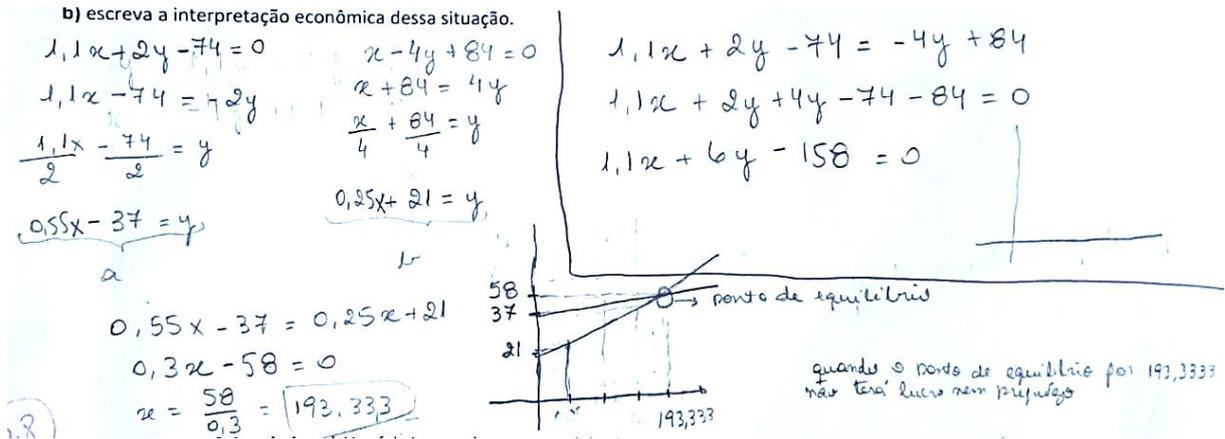 b) escreva a interpretação econômica dessa situação.
1,1x + 2y - 74 = 0
1,1x - 74 = 2y
1,1x/2 - 74/2 = y
0,55x - 37 = y
a
x - 4y + 84 = 0
x + 84 = 4y
x/4 + 84/4 = y
0,25x + 21 = y
b
1,1x + 2y - 74 = -4y + 84
1,1x + 2y + 4y - 74 - 84 = 0
1,1x + 6y - 158 = 0
0,55x - 37 = 0,25x + 21
0,3x - 58 = 0
x = 58/0,3 = 193,333
58
37
21
→ ponto de equilíbrio
193,333
quando o ponto de equilíbrio for 193,3333
não terá lucro nem prejuízo